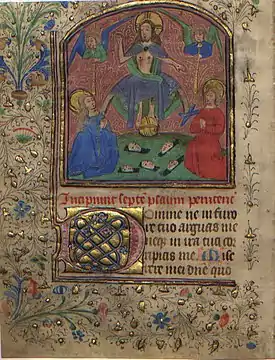 Incipiunt septe psalmi penitene
Domine ne in furo
re tuo arguas me
neqz in ira tua cor
ripias me. Mise
rere mei dne quo